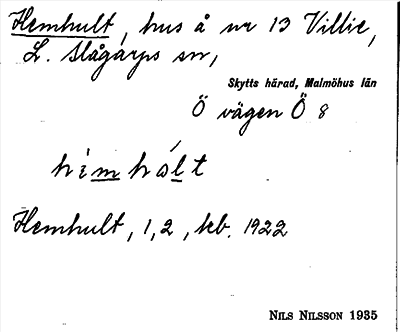 Hemhult, hus å nr 13 Villie,
L. Slågarps sn,
Skytts härad, Malmöhus län
Ö vägen Ö 8
himhált
Hemhult, 1, 2, teb. 1922
NILS NILSSON 1935